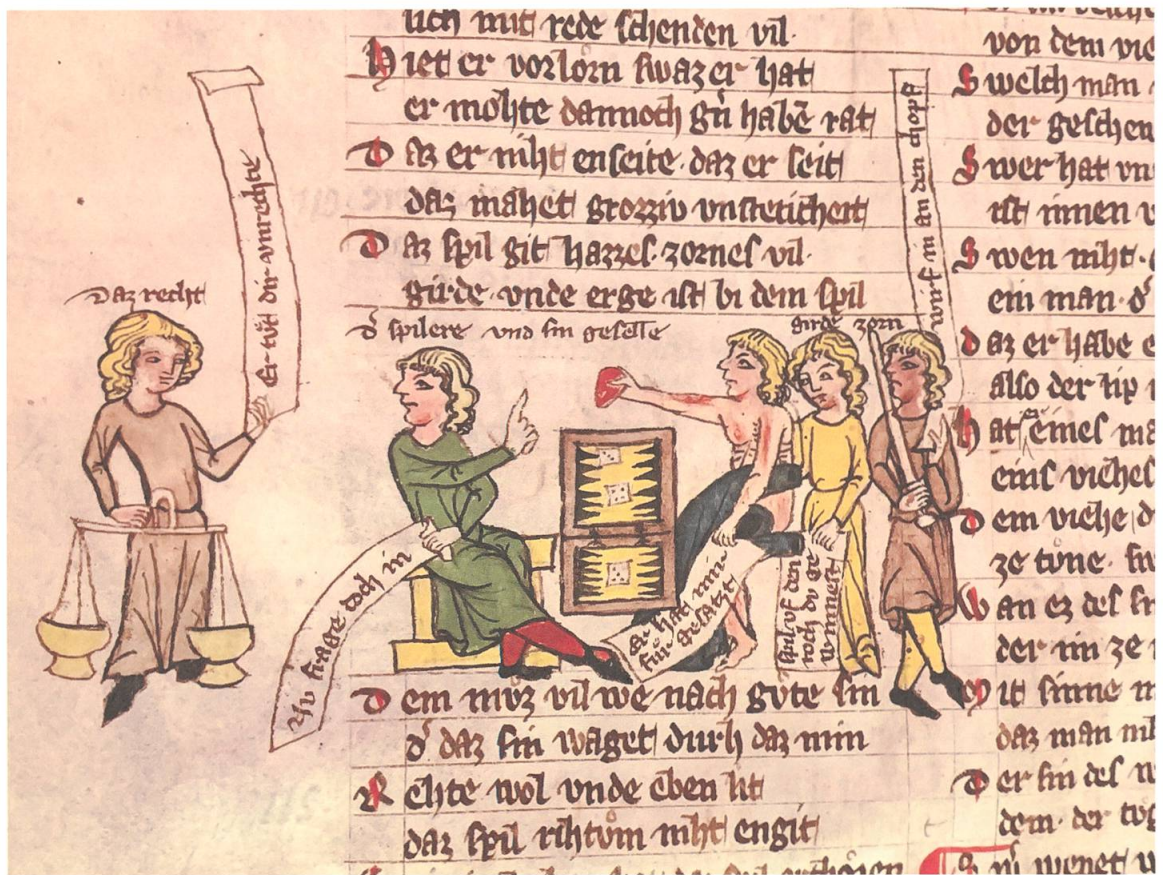 lich mit rede schenden vil·
Hiet er vorlorn swaz er hat
er mohte dannoch gůt habē rat
Daz er niht enseite· daz er seit
daz mahet grozziv vnstetichert
Daz spil git hazzes· zornes vil·
girde· vnde erge ist bi dem spil
Daz recht
Er tůt dir vnrechte
d' spilere vnd sin geselle
girde zorn
wirf in an den chopf
Nv frage doch in
er hat min
für gesatzt
spil vf den
roch dv ge
winnest
Dem můz vil we nach gůte sin
d' daz sin waget durh daz min
Rehte wol vnde eben lit
daz spil rihtům niht engit
von dem
Swelch man
der geschen
Swer hat vn
ist innen
Swen niht·
ein man· d'
daz er habe
also der lip
Hat eines
eins viehes
dem viehe
ze tůne·
Wan ez des
der im ze
Mit sinne
daz man
Der sin des
dem· der
wenet